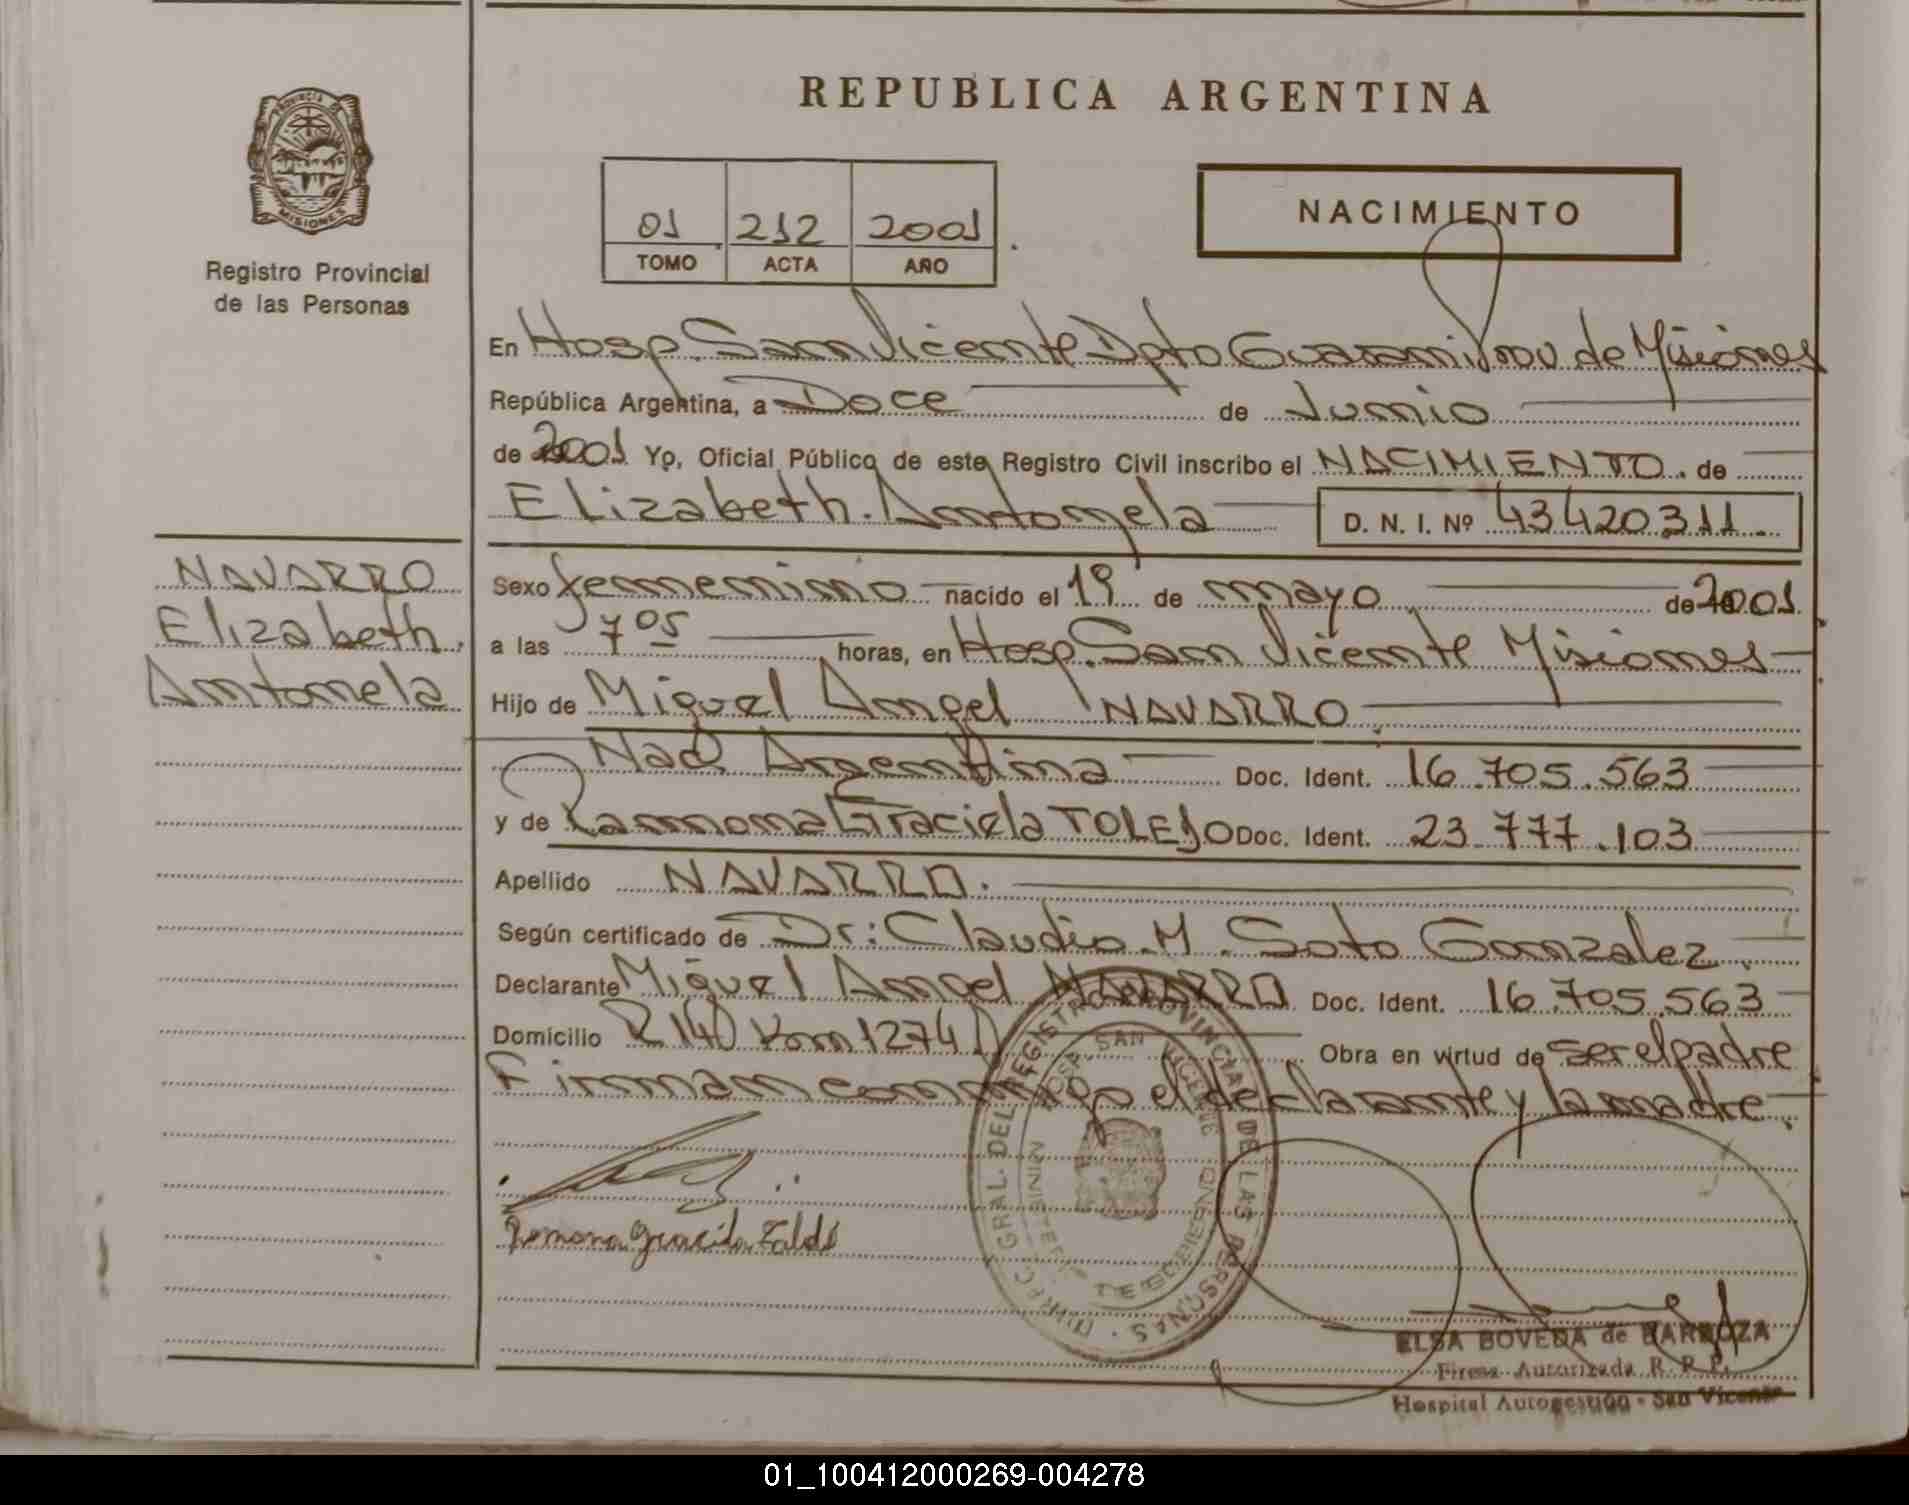 REPUBLICA ARGENTINA
PROVINCIA DE
MISIONES
Registro Provincial
de las Personas
01 212 2001
TOMO ACTA AÑO
NACIMIENTO
En Hosp. San Vicente Dpto Guarani Prov. de Misiones
República Argentina, a Doce de Junio
de 2001 Yo, Oficial Público de este Registro Civil inscribo el NACIMIENTO. de
Elizabeth. Antonela D. N. I. Nº 43420311
NAVARRO
Elizabeth.
Antonela
Sexo femenino nacido el 19 de mayo de 2001
a las 7 05 horas, en Hosp. San Vicente Misiones
Hijo de Miguel Angel NAVARRO
Nac. Argentina Doc. Ident. 16.705.563
y de Ramona Graciela TOLEDO Doc. Ident. 23.777.103
Apellido NAVARRO.
Según certificado de Dr: Claudio. M. Soto Gonzalez.
Declarante Miguel Angel NAVARRO Doc. Ident. 16.705.563
Domicilio R 14 Km 1274 Obra en virtud de ser el padre
Firman conmigo el declarante y la madre.
GRAL. DEL REGISTRO PROVINCIAL DE LAS PERSONAS
HOSP. SAN VICENTE
DE GOBIERNO
Ramona Graciela
ELSA BOVEDA de BARBOZA
Firma Autorizada R. P. P.
Hospital Autogestión - San Vicente
01_100412000269-004278